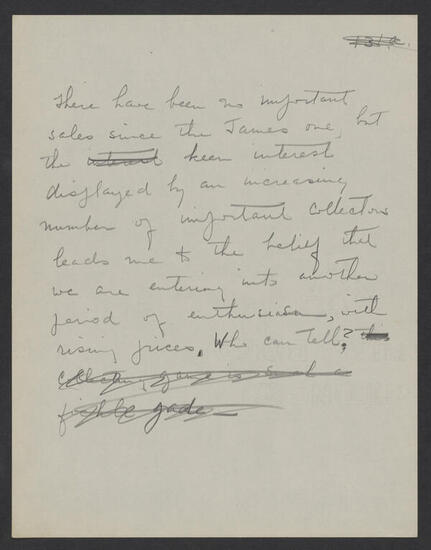 131a.
There have been no important
sales since the James one, but
the interest keen interest
displayed by an increasing
number of important collectors
leads me to the belief that
we are entering into another
period of enthusiasm, with
rising prices. Who can tell? this
collecting game is such a
fickle jade